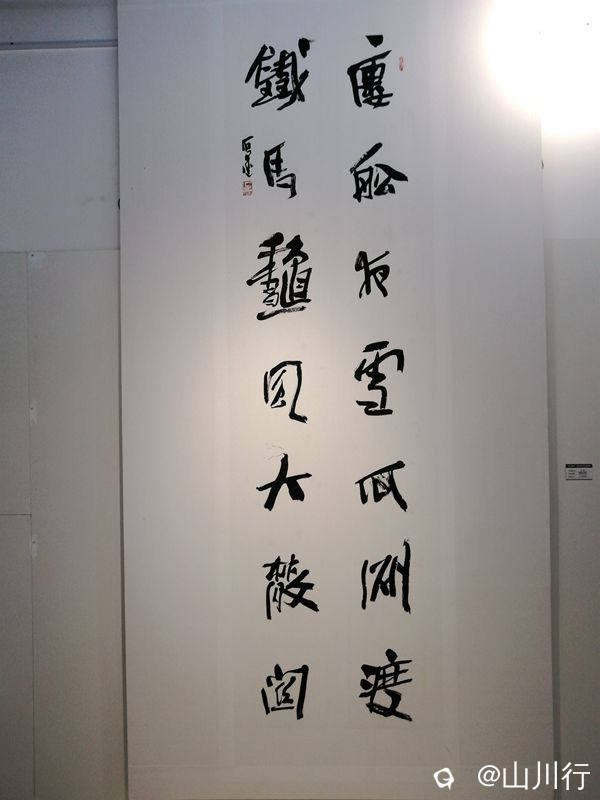 廔船夜雪瓜洲渡
鐵馬龝風大散關
@山川行